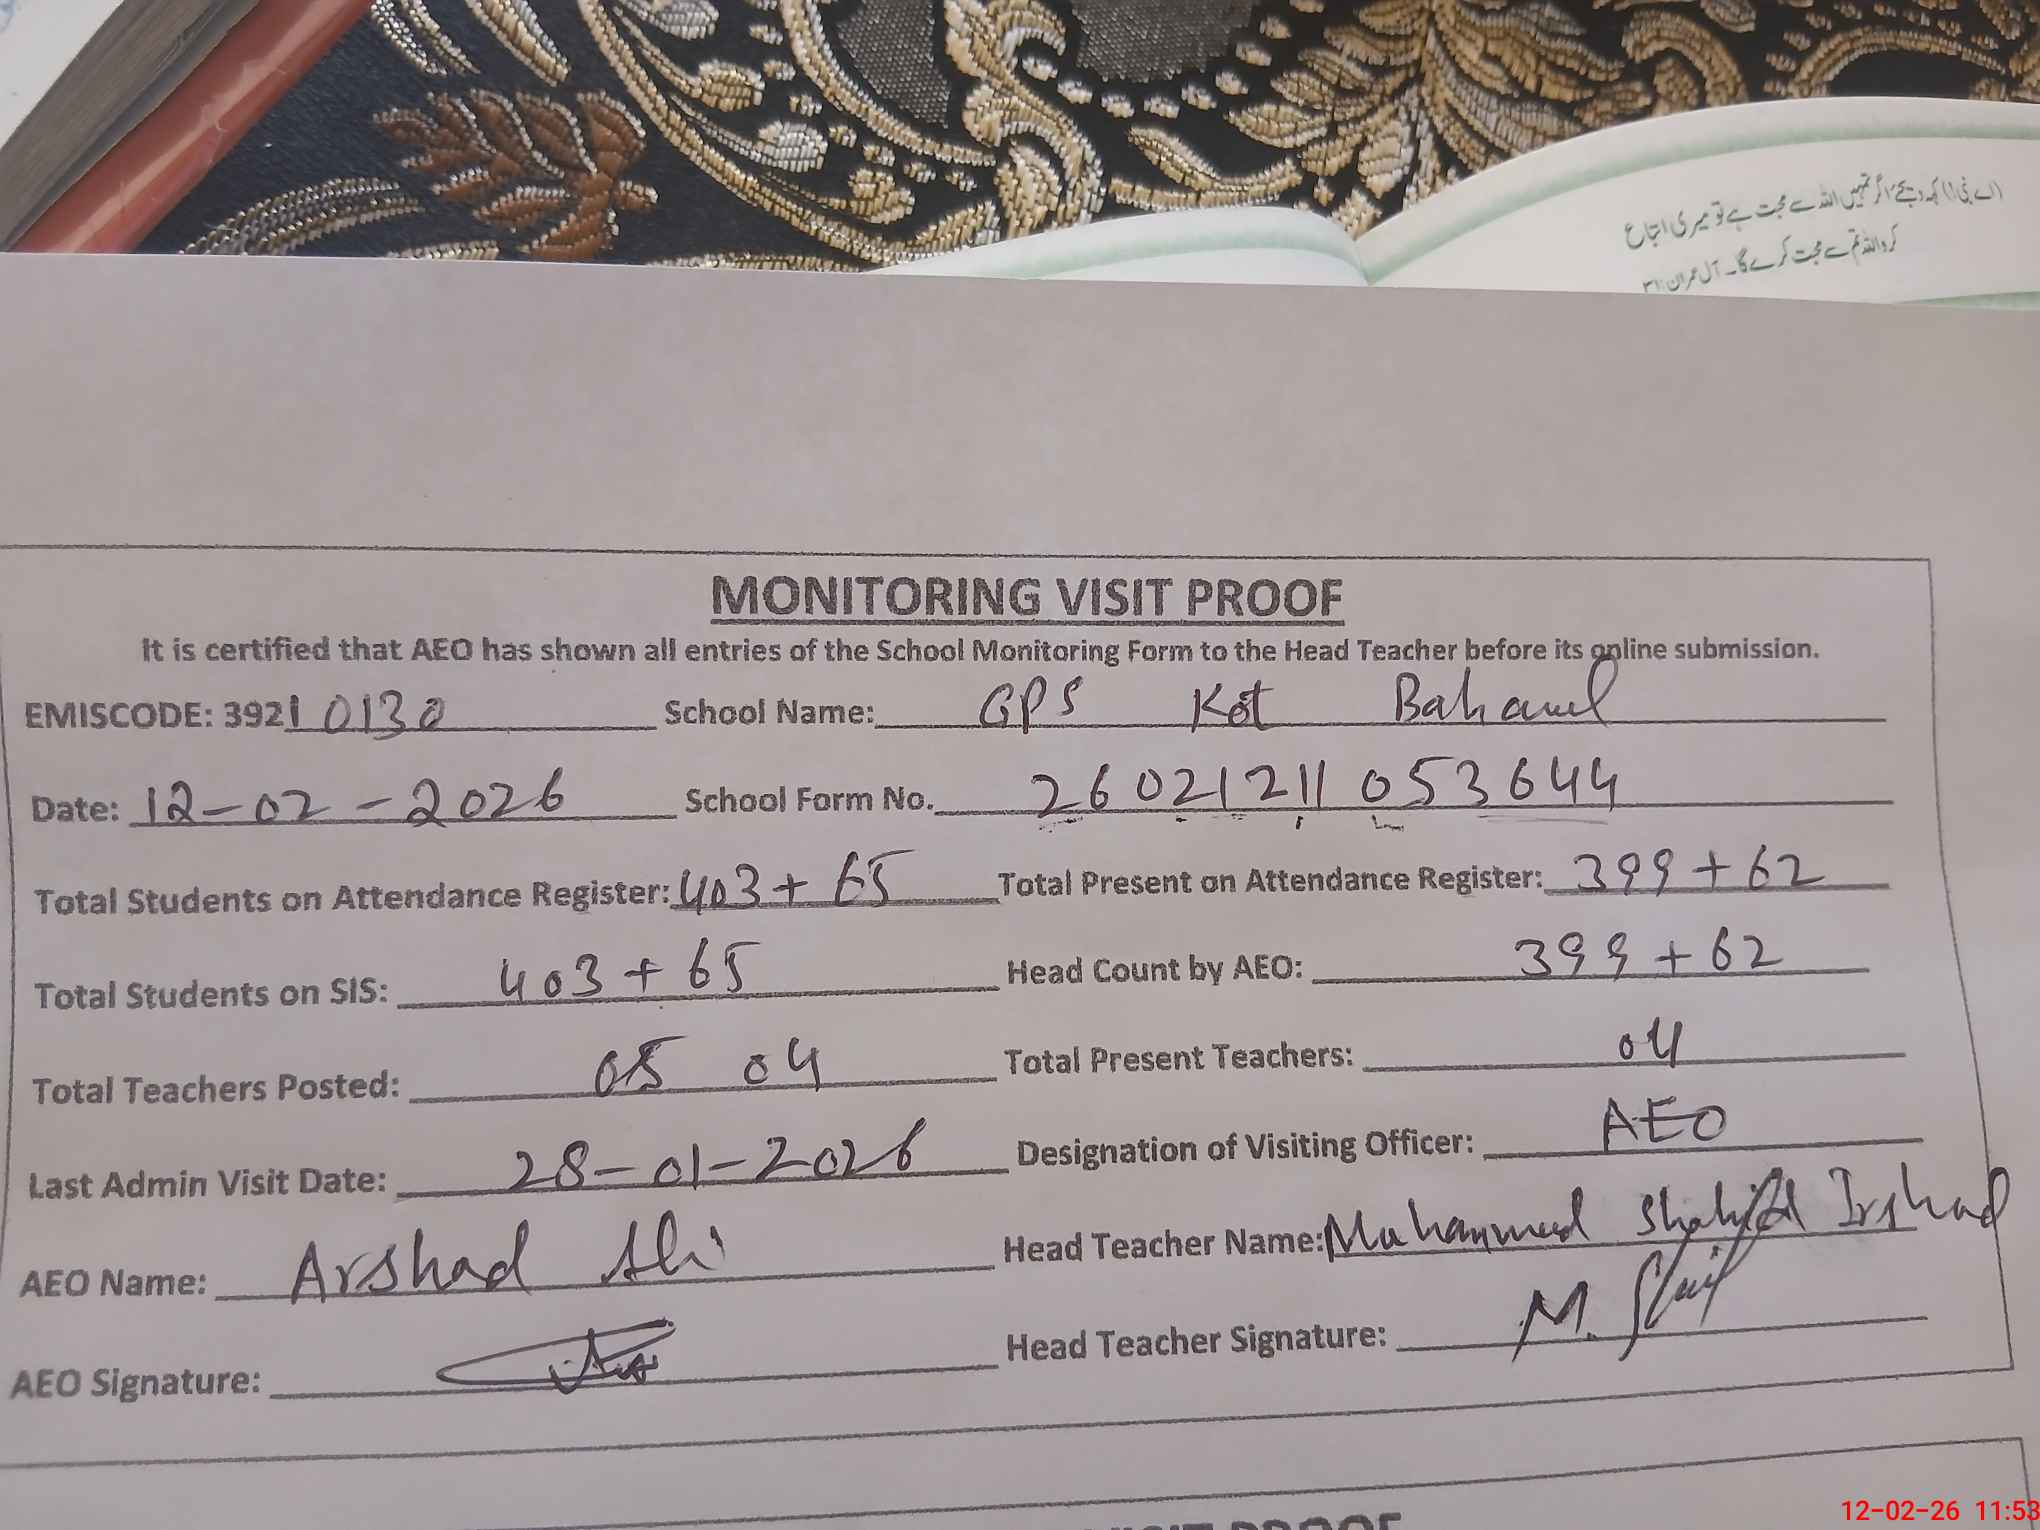 (اے نبی!) کہہ دیجئے اگر تمہیں اللہ سے محبت ہے تو میری اتباع
کرو اللہ تم سے محبت کرے گا۔ آل عمران:۳۱
MONITORING VISIT PROOF
It is certified that AEO has shown all entries of the School Monitoring Form to the Head Teacher before its online submission.
EMISCODE: 39210130 School Name: GPS Kot Bahawal
Date: 12-02-2026 School Form No. 26021211053644
Total Students on Attendance Register: 403+65 Total Present on Attendance Register: 399+62
Total Students on SIS: 403+65 Head Count by AEO: 399+62
Total Teachers Posted: 05 04 Total Present Teachers: 04
Last Admin Visit Date: 28-01-2026 Designation of Visiting Officer: AEO
AEO Name: Arshad Ali Head Teacher Name: Muhammad Irshad
AEO Signature: Head Teacher Signature: M.
VISIT PROOF
12-02-26 11:53